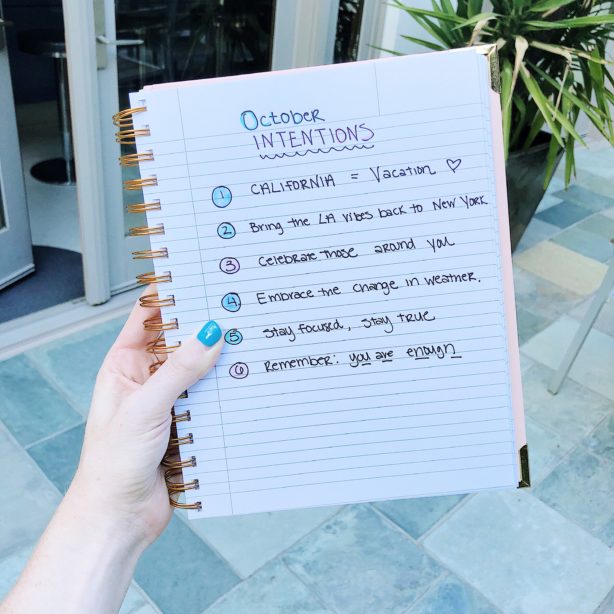 October
INTENTIONS
1 CALIFORNIA = Vacation ♡
2 Bring the LA vibes back to New York
3 Celebrate those around you
4 Embrace the change in weather.
5 stay focused, stay true
6 Remember: you are enough